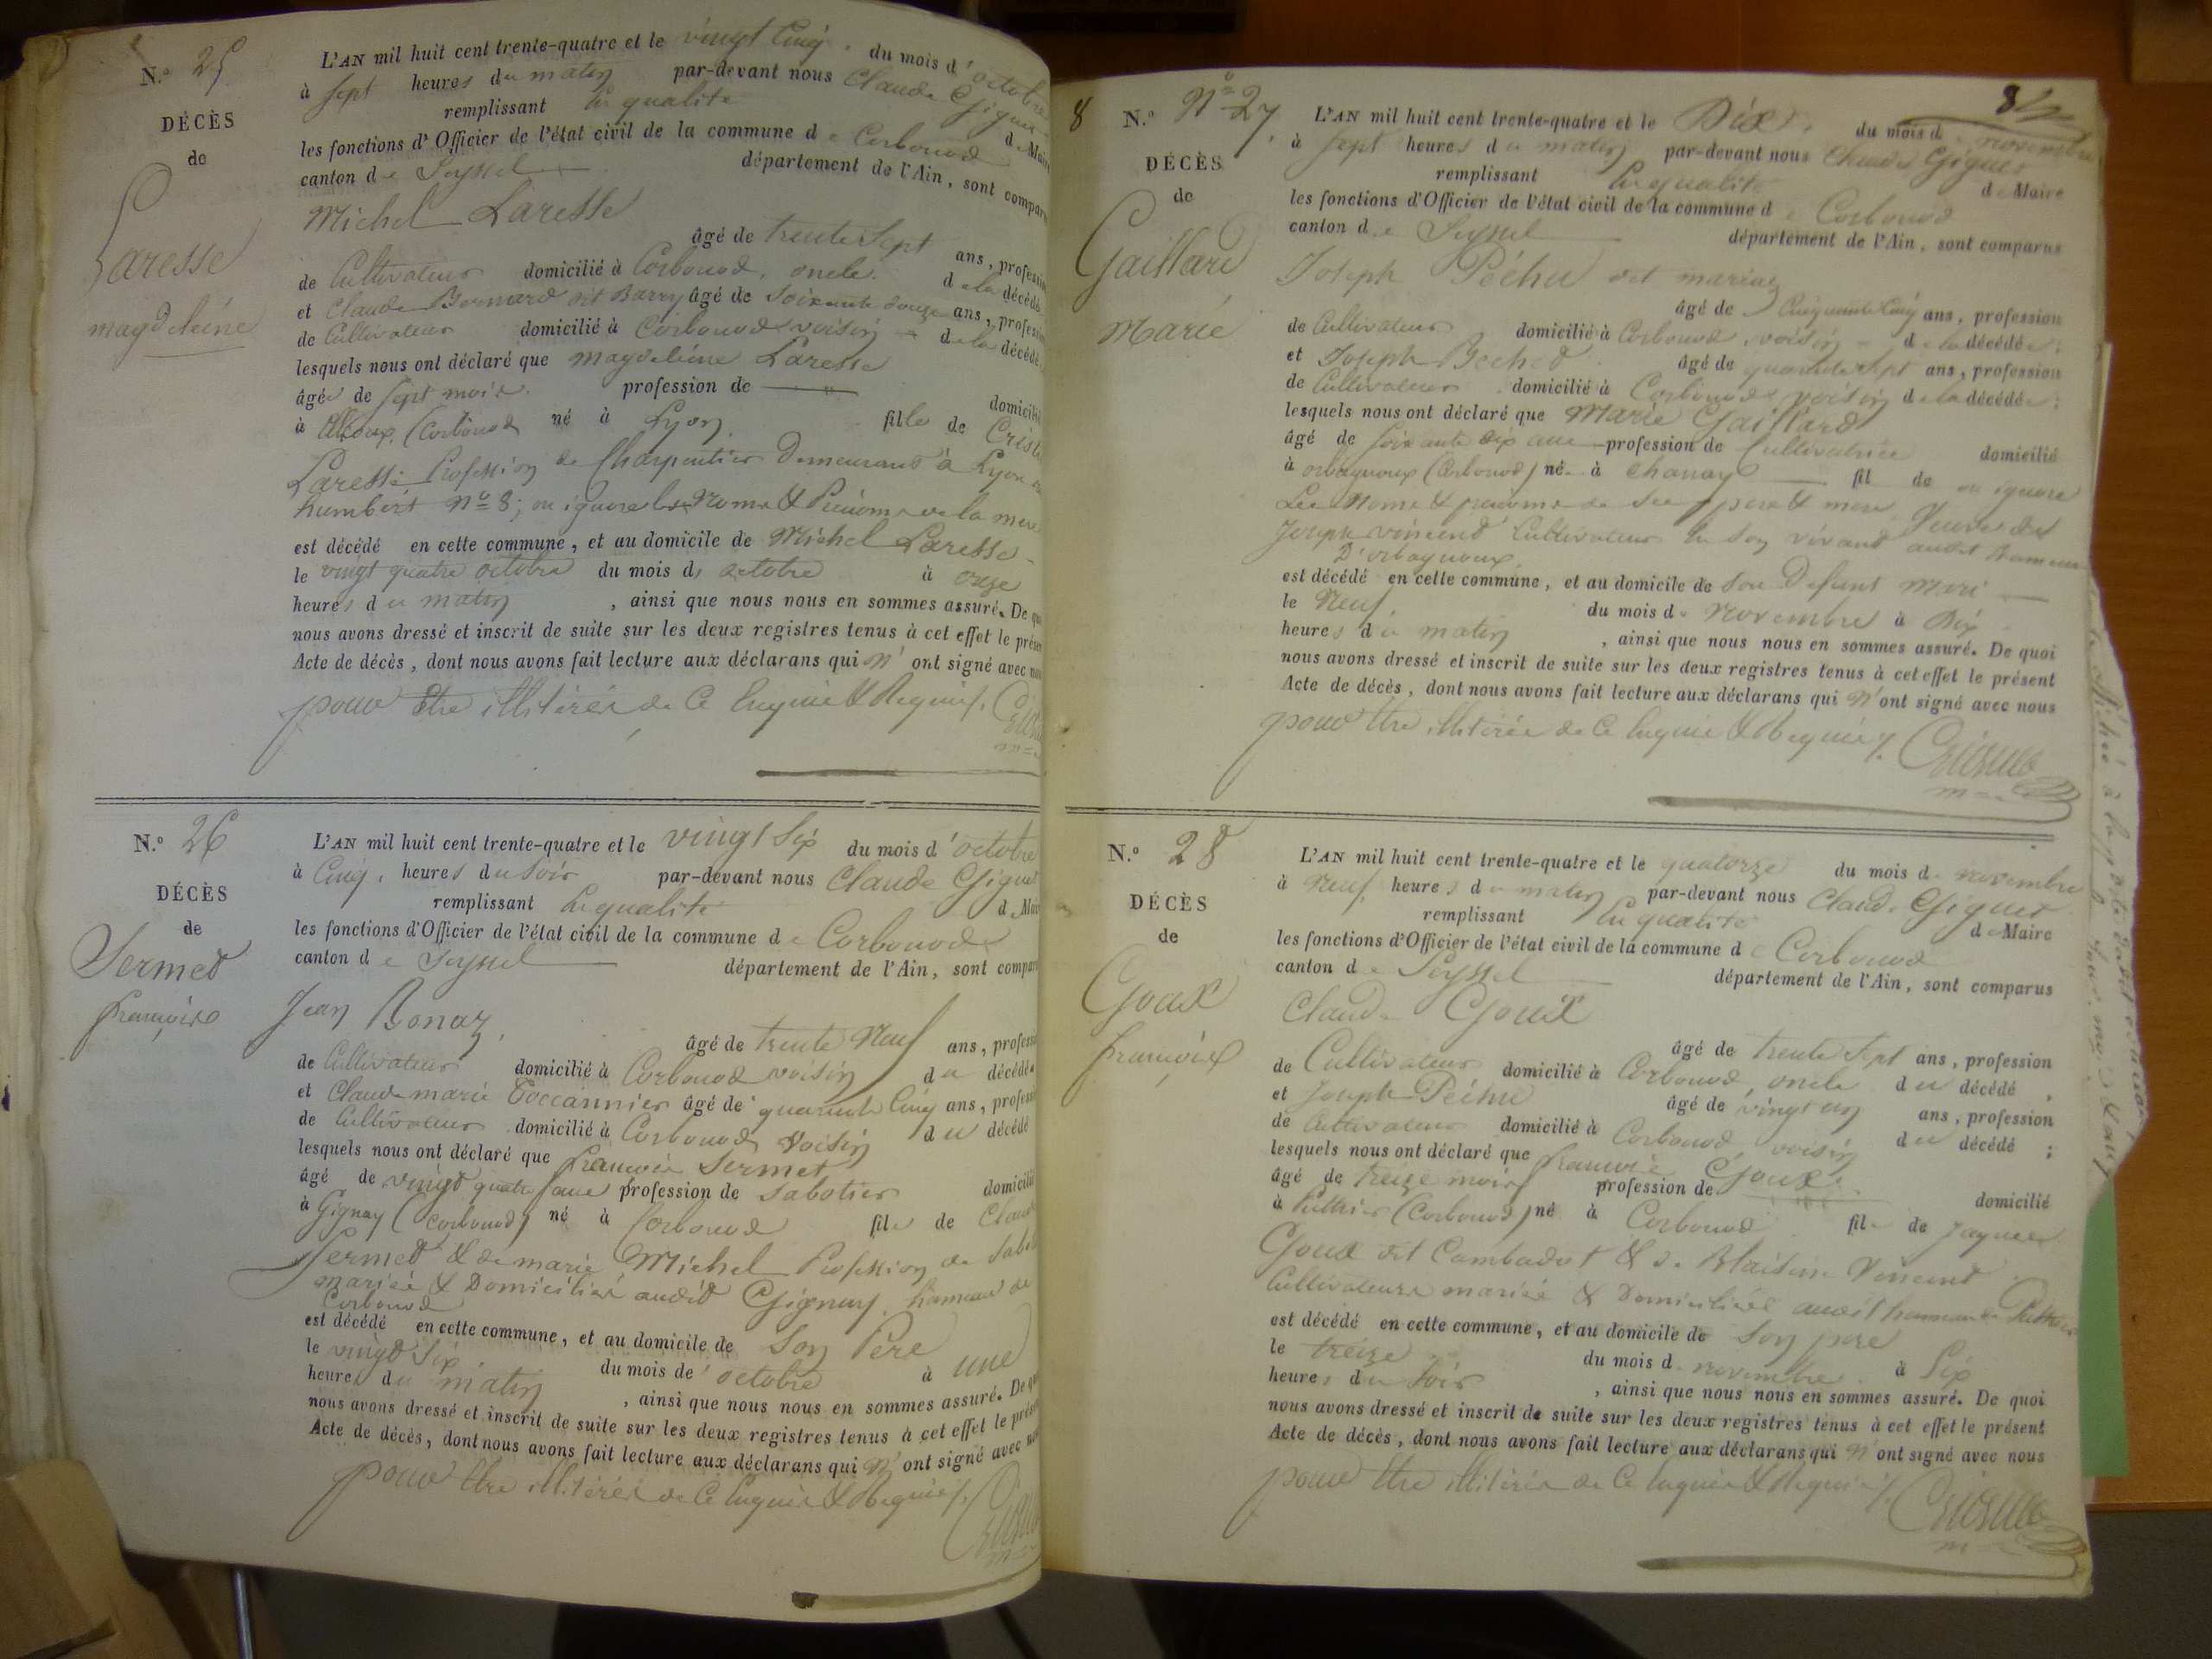 N.o 25
DÉCÈS
de
Laresse
magdeleine
L'AN mil huit cent trente-quatre et le vingt Cinq du mois d'octobre
à sept heures du matin par-devant nous Claude Giguet
remplissant en qualité de Maire
les fonctions d'Officier de l'état civil de la commune de Corbonod
canton de Seyssel département de l'Ain, sont compar
Michel Laresse
âgé de trente sept ans, profession
de Cultivateur domicilié à Corbonod, oncle de la décédé
et Claude Bornard dit Barry âgé de soixante douze ans, profession
de Cultivateur domicilié à Corbonod voisin de la décédé
lesquels nous ont déclaré que magdeleine Laresse
âgée de sept mois profession de domicilié
à (Corbonod né à Lyon fille de
Laresse Profession de Charpentier Demeurant à Lyon
humbert No 8; on ignore les Noms & Prénoms de la mere
est décédé en cette commune, et au domicile de Michel Laresse
le vingt quatre octobre du mois d octobre à onze
heures du matin, ainsi que nous nous en sommes assuré. De
nous avons dressé et inscrit de suite sur les deux registres tenus à cet effet le
Acte de décès, dont nous avons fait lecture aux déclarans qui n'ont signé avec
pour être illitérés de ce enquis & Requis.
N.o 26
DÉCÈS
de
Sermet
françois
L'AN mil huit cent trente-quatre et le vingt six du mois d'octobre
à Cinq heures du soir par-devant nous Claude Giguet
remplissant en qualité de
les fonctions d'Officier de l'état civil de la commune de Corbonod
canton de Seyssel département de l'Ain, sont compar
Jean Bonaz
âgé de trente Neuf ans, profess
de Cultivateur domicilié à Corbonod voisin du décédé
et Claude marie Toccannier âgé de quarante Cinq ans, profess
de Cultivateur domicilié à Corbonod voisin du décédé
lesquels nous ont déclaré que françois Sermet
âgé de vingt quatre ans profession de sabotier domicilié
à Gignay (Corbonod) né à Corbonod fils de
Sermet & de marie Michel Profession de
mariés & Domiciliés audit Gignay, hameau de
Corbonod
est décédé en cette commune, et au domicile de Son Père
le vingt six du mois de octobre à une
heure du matin, ainsi que nous nous en sommes assuré. De
nous avons dressé et inscrit de suite sur les deux registres tenus à cet effet le
Acte de décès, dont nous avons fait lecture aux déclarans qui n'ont signé avec
pour être illitérés de ce enquis & Requis.
8
N.o No 27
DÉCÈS
de
Gaillard
Marie
L'AN mil huit cent trente-quatre et le Dix du mois de novembre
à sept heures du matin par-devant nous Claude Giguet
remplissant en qualité de Maire
les fonctions d'Officier de l'état civil de la commune de Corbonod
canton de Seyssel département de l'Ain, sont comparus
Joseph Péhu dit
âgé de Cinquante Cinq ans, profession
de Cultivateur domicilié à Corbonod voisin de la décédée;
et Joseph Bechet âgé de quarante sept ans, profession
de Cultivateur domicilié à Corbonod voisin de la décédée;
lesquels nous ont déclaré que Marie Gaillard
âgé de soixante dix ans profession de Cultivatrice domicilié
à orbagnoux (Corbonod) née à Chanay fil de on ignore
Les Noms & prénoms de ses pere & mere Veuve de
Joseph vincent Cultivateur en son vivant audit hameau
D'orbagnoux
est décédé en cette commune, et au domicile de son Defunt Mari
le Neuf du mois de novembre à Dix
heures du matin, ainsi que nous nous en sommes assuré. De quoi
nous avons dressé et inscrit de suite sur les deux registres tenus à cet effet le présent
Acte de décès, dont nous avons fait lecture aux déclarans qui n'ont signé avec nous
pour être illitérés de ce enquis & Requis.
N.o 28
DÉCÈS
de
Goux
françois
L'AN mil huit cent trente-quatre et le quatorze du mois de novembre
à Neuf heures du matin par-devant nous Claude Giguet
remplissant en qualité de Maire
les fonctions d'Officier de l'état civil de la commune de Corbonod
canton de Seyssel département de l'Ain, sont comparus
Claude Goux
âgé de trente sept ans, profession
de Cultivateur domicilié à Corbonod, oncle du décédé,
et Joseph Péhu âgé de vingt un ans, profession
de Cultivateur domicilié à Corbonod voisin du décédé;
lesquels nous ont déclaré que françois Goux
âgé de treize mois profession de domicilié
à Puthier (Corbonod) né à Corbonod fils de Jaques
Goux dit Cambadot & de Blaisine Vincent
Cultivateurs mariés & Domiciliés audit hameau de Puthier
est décédé en cette commune, et au domicile de son pere
le treize du mois de novembre à Six
heures du soir, ainsi que nous nous en sommes assuré. De quoi
nous avons dressé et inscrit de suite sur les deux registres tenus à cet effet le présent
Acte de décès, dont nous avons fait lecture aux déclarans qui n'ont signé avec nous
pour être illitérés de ce enquis & Requis.